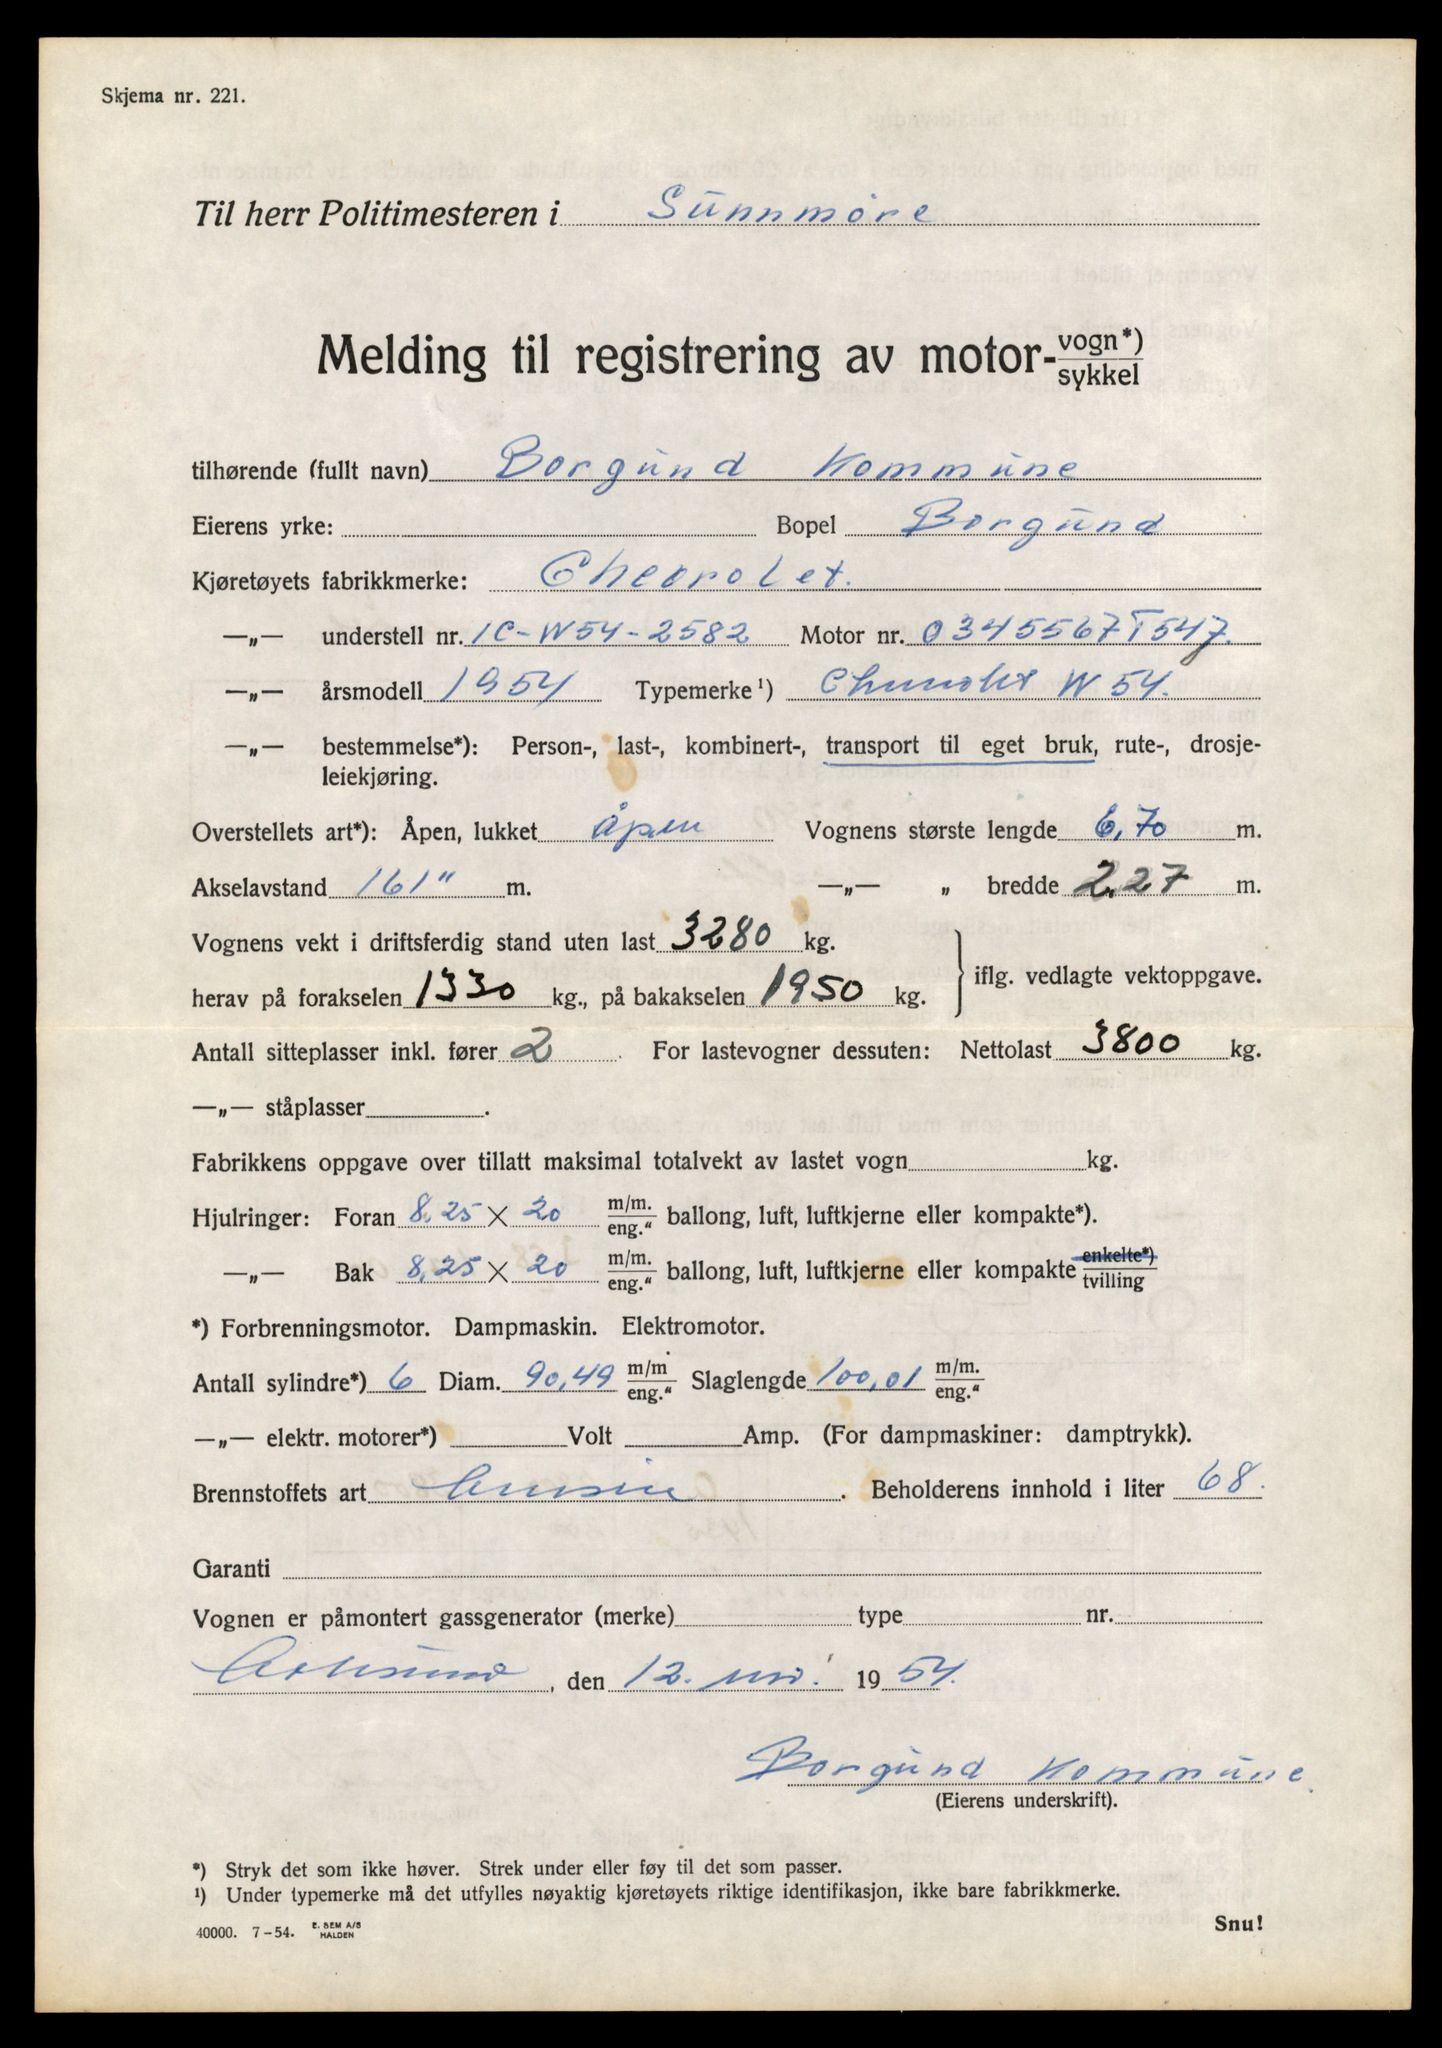 Skjema nr. 221.
Til herr Politimesteren i Sunnmøre
Melding til registrering av motor-vogn*)
sykkel
tilhørende (fullt navn) Borgund Kommune
Eierens yrke: Bopel Borgund
Kjøretøyets fabrikkmerke: Chevrolet.
—„— understell nr. 1C-W54-2582 Motor nr. 0345567T547.
—„— årsmodell 1954 Typemerke¹) Chevrolet W 54.
—„— bestemmelse*): Person-, last-, kombinert-, transport til eget bruk, rute-, drosje-
leiekjøring.
Overstellets art*): Åpen, lukket åpen Vognens største lengde 6,70 m.
Akselavstand 161" m. —„— „ bredde 2.27 m.
Vognens vekt i driftsferdig stand uten last 3280 kg.
herav på forakselen 1330 kg., på bakakselen 1950 kg. } iflg. vedlagte vektoppgave.
Antall sitteplasser inkl. fører 2 . For lastevogner dessuten: Nettolast 3800 kg.
—„— ståplasser .
Fabrikkens oppgave over tillatt maksimal totalvekt av lastet vogn kg.
Hjulringer: Foran 8.25 X 20 m/m. eng.“ ballong, luft, luftkjerne eller kompakte*).
—„— Bak 8,25 X 20 m/m. eng.“ ballong, luft, luftkjerne eller kompakte enkelte*) tvilling
*) Forbrenningsmotor. Dampmaskin. Elektromotor.
Antall sylindre*) 6 Diam. 90,49 m/m eng.“ Slaglengde 100,01 m/m. eng.“
—„— elektr. motorer*) Volt Amp. (For dampmaskiner: damptrykk).
Brennstoffets art bensin . Beholderens innhold i liter 68.
Garanti
Vognen er påmontert gassgenerator (merke) type nr.
Aalesund, den 12. nov. 1954.
Borgund Kommune.
(Eierens underskrift).
*) Stryk det som ikke høver. Strek under eller føy til det som passer.
¹) Under typemerke må det utfylles nøyaktig kjøretøyets riktige identifikasjon, ikke bare fabrikkmerke.
40000. 7-54. E. SEM A/S
HALDEN
Snu!